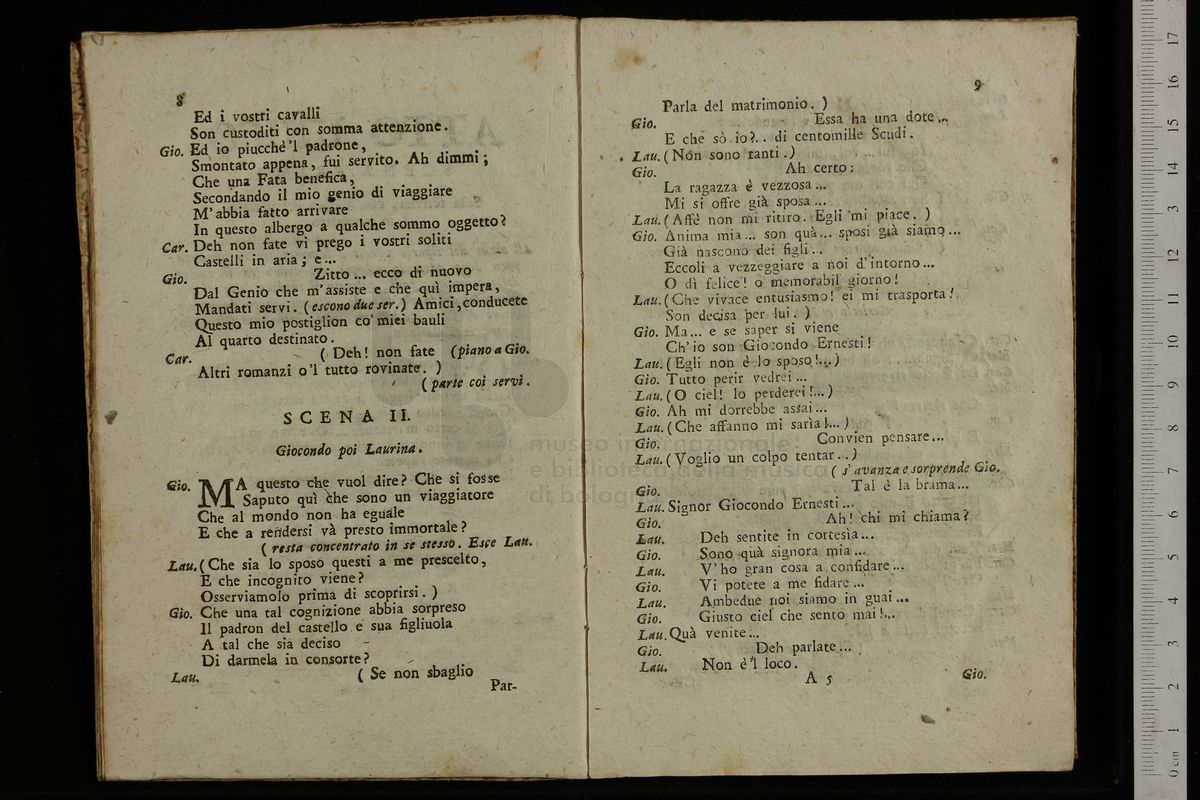 8
Ed i vostri cavalli
Son custoditi con somma attenzione.
Gio. Ed io piucchè 'l padrone,
Smontato appena, fui servito. Ah dimmi;
Che una Fata benefica,
Secondando il mio genio di viaggiare
M'abbia fatto arrivare
In questo albergo a qualche sommo oggetto?
Car. Deh non fate vi prego i vostri soliti
Castelli in aria; e...
Gio. Zitto... ecco di nuovo
Dal Genio che m'assiste e che quì impera,
Mandati servi. (escono due ser.) Amici, conducete
Questo mio postiglion co' miei bauli
Al quarto destinato.
Car. ( Deh! non fate (piano a Gio.
Altri romanzi o'l tutto rovinate. )
( parte coi servi.
SCENA II.
Giocondo poi Laurina.
Gio. MA questo che vuol dire? Che si fosse
Saputo quì che sono un viaggiatore
Che al mondo non ha eguale
E che a rendersi và presto immortale?
( resta concentrato in se stesso. Esce Lau.
Lau. ( Che sia lo sposo questi a me prescelto,
E che incognito viene?
Osserviamolo prima di scoprirsi. )
Gio. Che una tal cognizione abbia sorpreso
Il padron del castello e sua figliuola
A tal che sia deciso
Di darmela in consorte?
Lau. ( Se non sbaglio
Par-
9
Parla del matrimonio. )
Gio. Essa ha una dote...
E che sò io?.. di centomille Scudi.
Lau. ( Non sono tanti. )
Gio. Ah certo:
La ragazza è vezzosa...
Mi si offre già sposa...
Lau. ( Affè non mi ritiro. Egli mi piace. )
Gio. Anima mia... son quà... sposi già siamo...
Già nascono dei figli...
Eccoli a vezzeggiare a noi d'intorno...
O dì felice! o memorabil giorno!
Lau. ( Che vivace entusiasmo! ei mi trasporta!
Son decisa per lui. )
Gio. Ma... e se saper si viene
Ch'io son Giocondo Ernesti!
Lau. ( Egli non è lo sposo!... )
Gio. Tutto perir vedrei...
Lau. ( O ciel! lo perderei!... )
Gio. Ah mi dorrebbe assai...
Lau. ( Che affanno mi saria!... )
Gio. Convien pensare...
Lau. ( Voglio un colpo tentar... )
( s'avanza e sorprende Gio.
Gio. Tal è la brama...
Lau. Signor Giocondo Ernesti...
Gio. Ah! chi mi chiama?
Lau. Deh sentite in cortesìa...
Gio. Sono quà signora mia...
Lau. V'ho gran cosa a confidare...
Gio. Vi potete a me fidare...
Lau. Ambedue noi siamo in guai...
Gio. Giusto ciel che sento mai!...
Lau. Quà venite...
Gio. Deh parlate...
Lau. Non è'l loco.
A 5
Gio.
museo internazionale
e biblioteca della musica
di bologna
0 cm 1 2 3 4 5 6 7 8 9 10 11 12 13 14 15 16 17